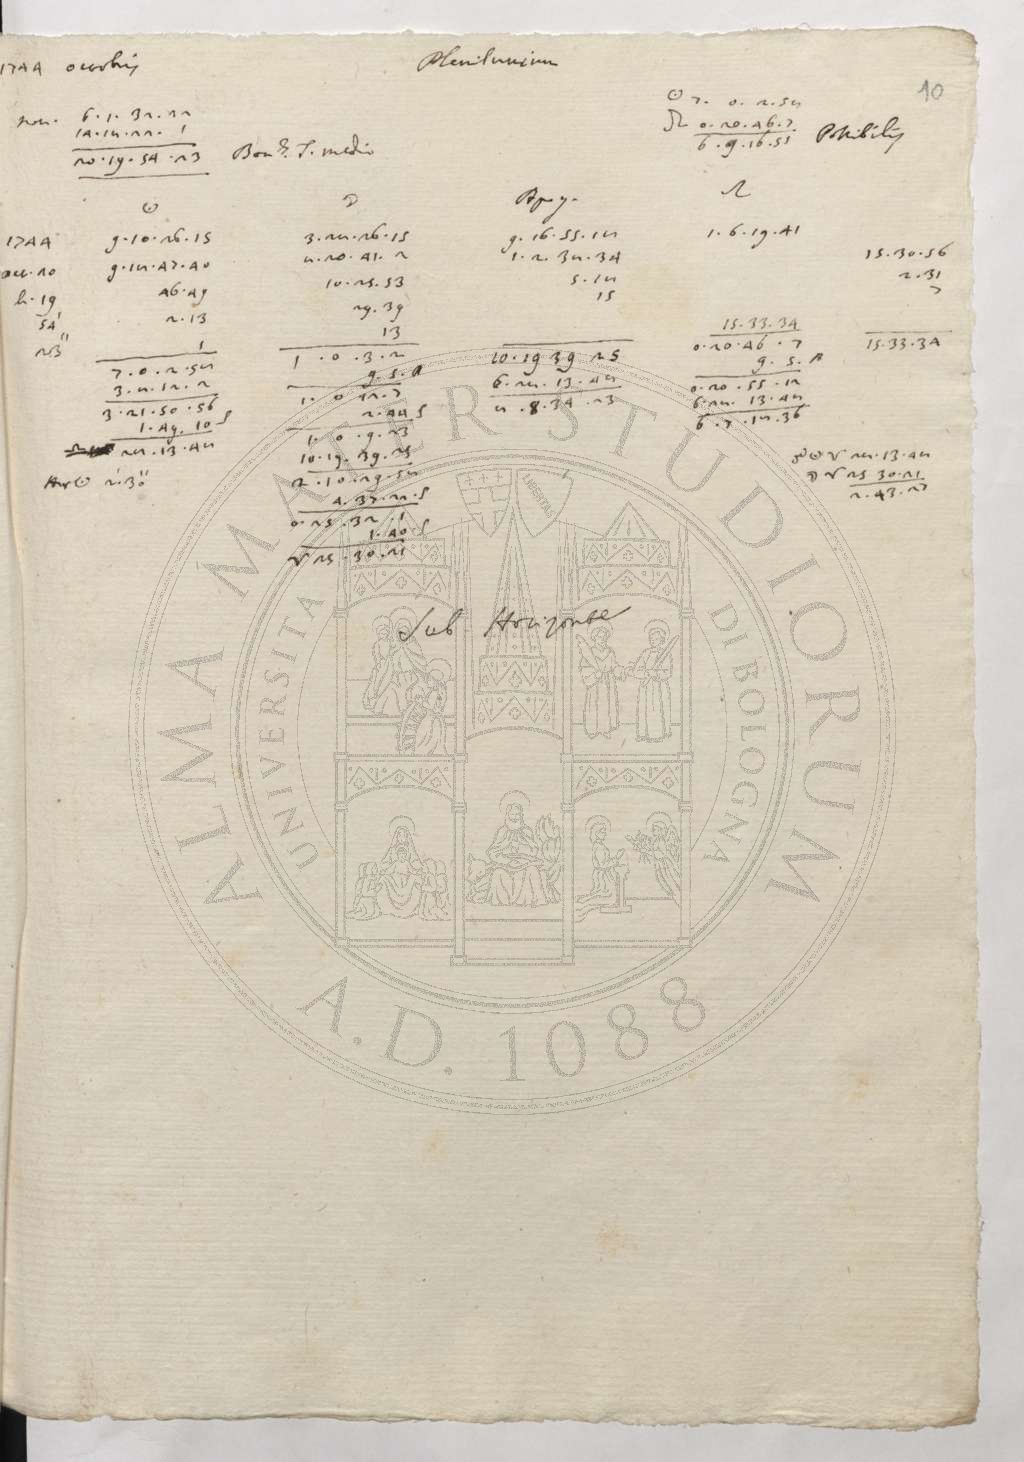 1744 octobris Plenilunium
10
nou. 6.1.32.22 ☉ 7. 0. 2.58
14.18.22. 1 ☊ 0.20.46.7 Possibilis
20.19.54.23 Bon. T. medio 6.9.16.51
☉ ☽ Apog. ☊
1744 9.10.26.15 3.28.26.15 9.16.55.18 1.6.19.41
oct.20 9.18.47.40 8.20.41.2 1.2.38.34 15.30.56
h.19 46.49 10.25.53 5.18 2.31
54' 2.13 29.39 15 7
23'' 1 13 15.33.34
7.0.2.58 1.0.3.2 10.19.39.25 0.20.46.7 15.33.34
3.8.12.2 9.5.A 6.28.13.48 9.5.A
3.21.50.56 1.0.12.7 8.8.34.23 0.20.55.12
1.49.10 S 2.44 S 6.28.13.48
28.13.48 1.0.9.23 6.7.18.36
10.19.39.25 ☍☉♈ 28.13.48
☉ 2.30'' 2.10.29.58 ☽♈ 25.30.21
4.37.22.S 2.43.27
0.25.32.1
1.40 S
♈ 25.30.21
Sub Horizonte
ALMA MATER STUDIORUM
A.D. 1088
UNIVERSITA DI BOLOGNA
LIBERTAS